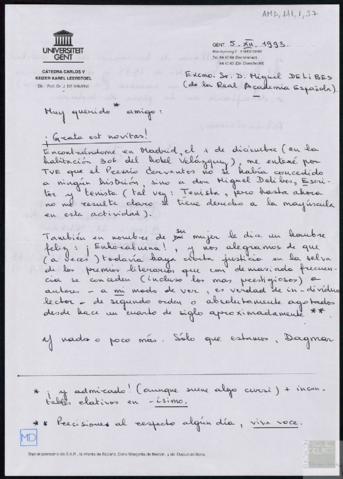 AMD, 111, 1, 57
UNIVERSITEIT
GENT
CÁTEDRA CARLOS V
KEIZER KAREL LEERSTOEL
GENT, 5.XII.1993
Excmo. Sr. D. Miguel DELIBES
(de la Real Academia Española)
Muy querido * amigo:
¡Grata est novitas!
Encontrándome en Madrid, el 1 de diciembre (en la
habitación 306 del hotel Velázquez), me enteré por
TVE que el Premio Cervantes no se había concedido
a ningún histrión, sino a don Miguel Delibes, Escri-
tor y tenista (tal vez: Tenista, pero hasta ahora
no me resulta claro si tiene derecho a la mayúscula
en esta actividad).
También en nombre de su mujer le da un hombre
feliz: ¡Enhorabuena!, y nos alegramos de que
(a veces) todavía haya cierta justicia en la selva
de los premios literarios que con demasiada frecuen-
cia se conceden (incluso los más prestigiosos) a
autores - a mi modo de ver, es verdad de in-dividuo
lector - de segundo orden o absolutamente agotados
desde hace un cuarto de siglo aproximadamente **
Y nada o poco más. Sólo que estamos, Dagmar
* ¡y admirado! (aunque suene algo cursi) + incon-
tables elativos en -ísimo.
** Precisiones al respecto algún día, viva voce.
MD